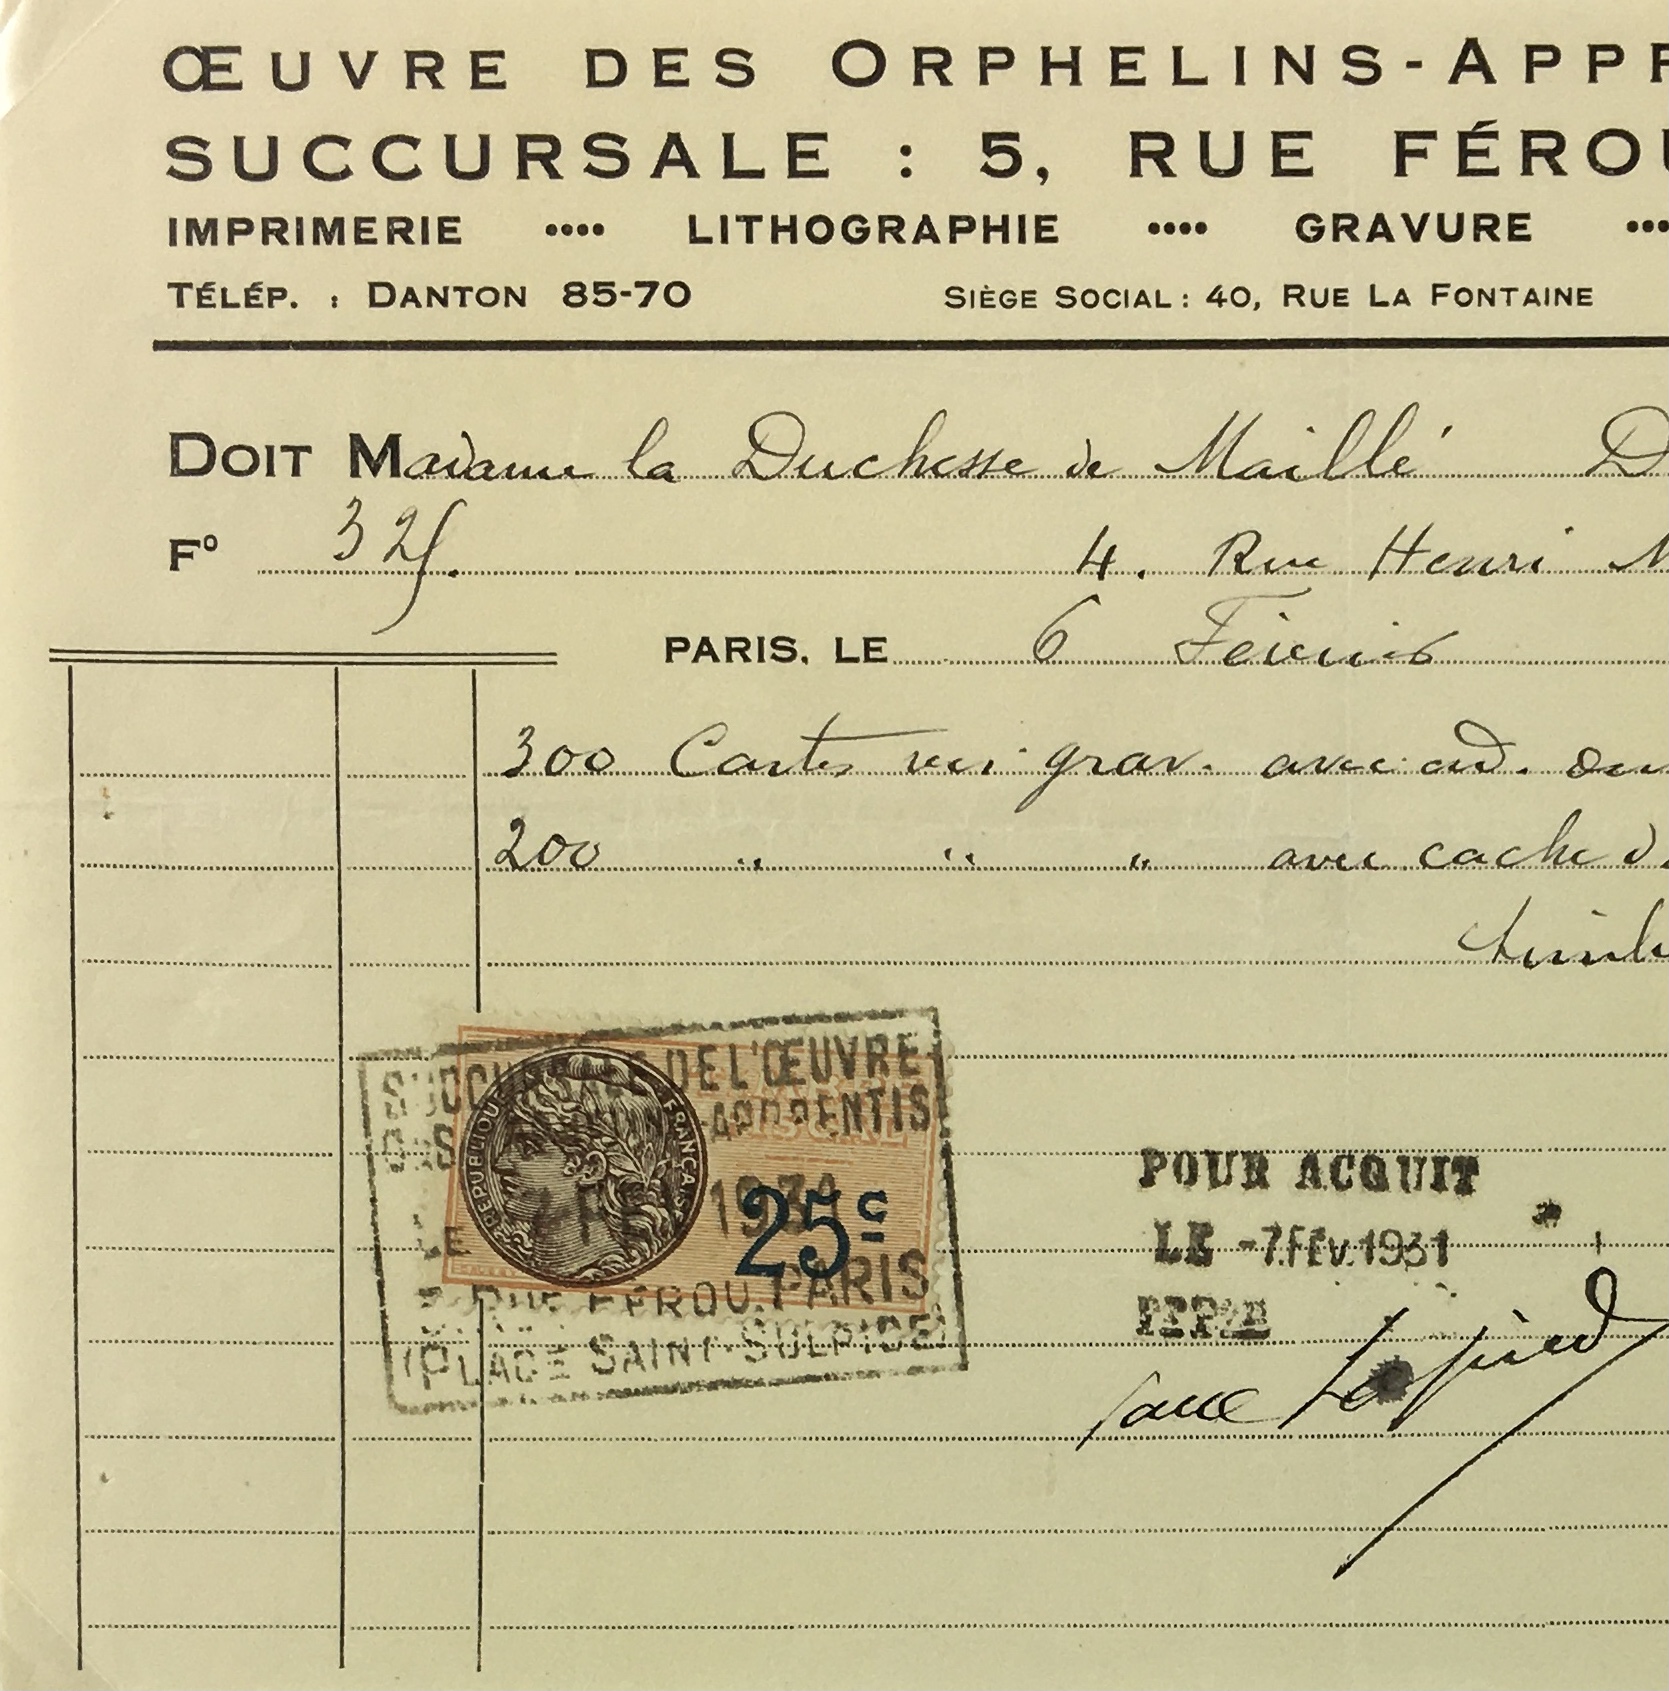 ŒUVRE DES ORPHELINS-APPR
SUCCURSALE : 5, RUE FÉROU
IMPRIMERIE •••• LITHOGRAPHIE •••• GRAVURE •••
TÉLÉP. : DANTON 85-70 SIÈGE SOCIAL : 40, RUE LA FONTAINE
DOIT Madame la Duchesse de Maillé D
Fº 32 4. Rue Henri M
PARIS, LE 6 Février
300 Cartes grav. avec ad.
200 " " " avec cache
SUCCURSALE DE L'ŒUVRE
DES -APPRENTIS
REPUBLIQUE FRANÇAISE
LE 7 FEV 1931
25c
5 RUE FEROU. PARIS
(PLACE SAINT-SULPICE)
POUR ACQUIT
LE -7.FEV.1931